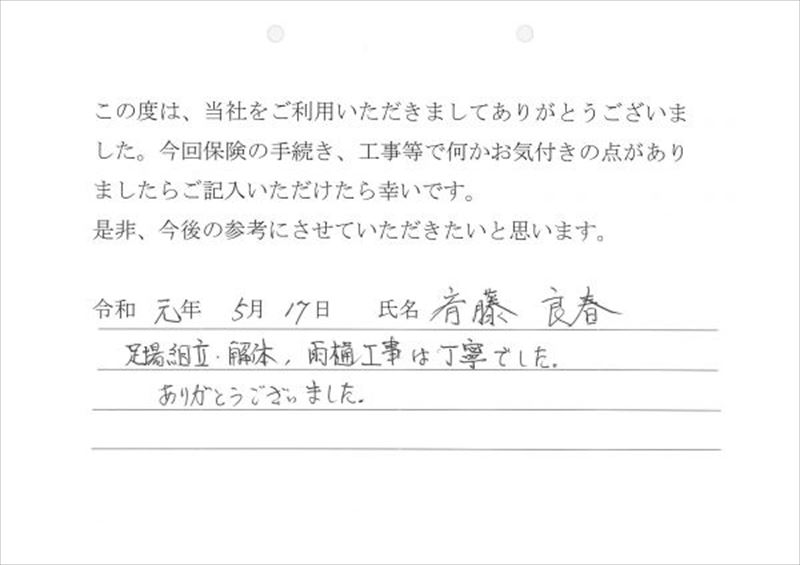 この度は、当社をご利用いただきましてありがとうございま
した。今回保険の手続き、工事等で何かお気付きの点があり
ましたらご記入いただけたら幸いです。
是非、今後の参考にさせていただきたいと思います。
令和 元年 5月 17日 氏名 斉藤 良春
足場組立・解体、雨樋工事は丁寧でした。
ありがとうございました。